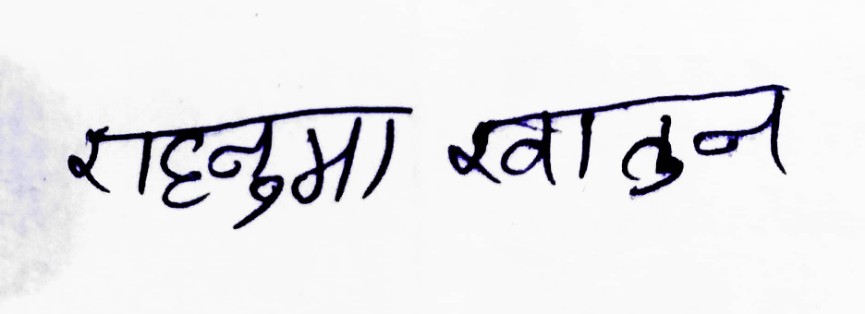 राहनुमा खातुन